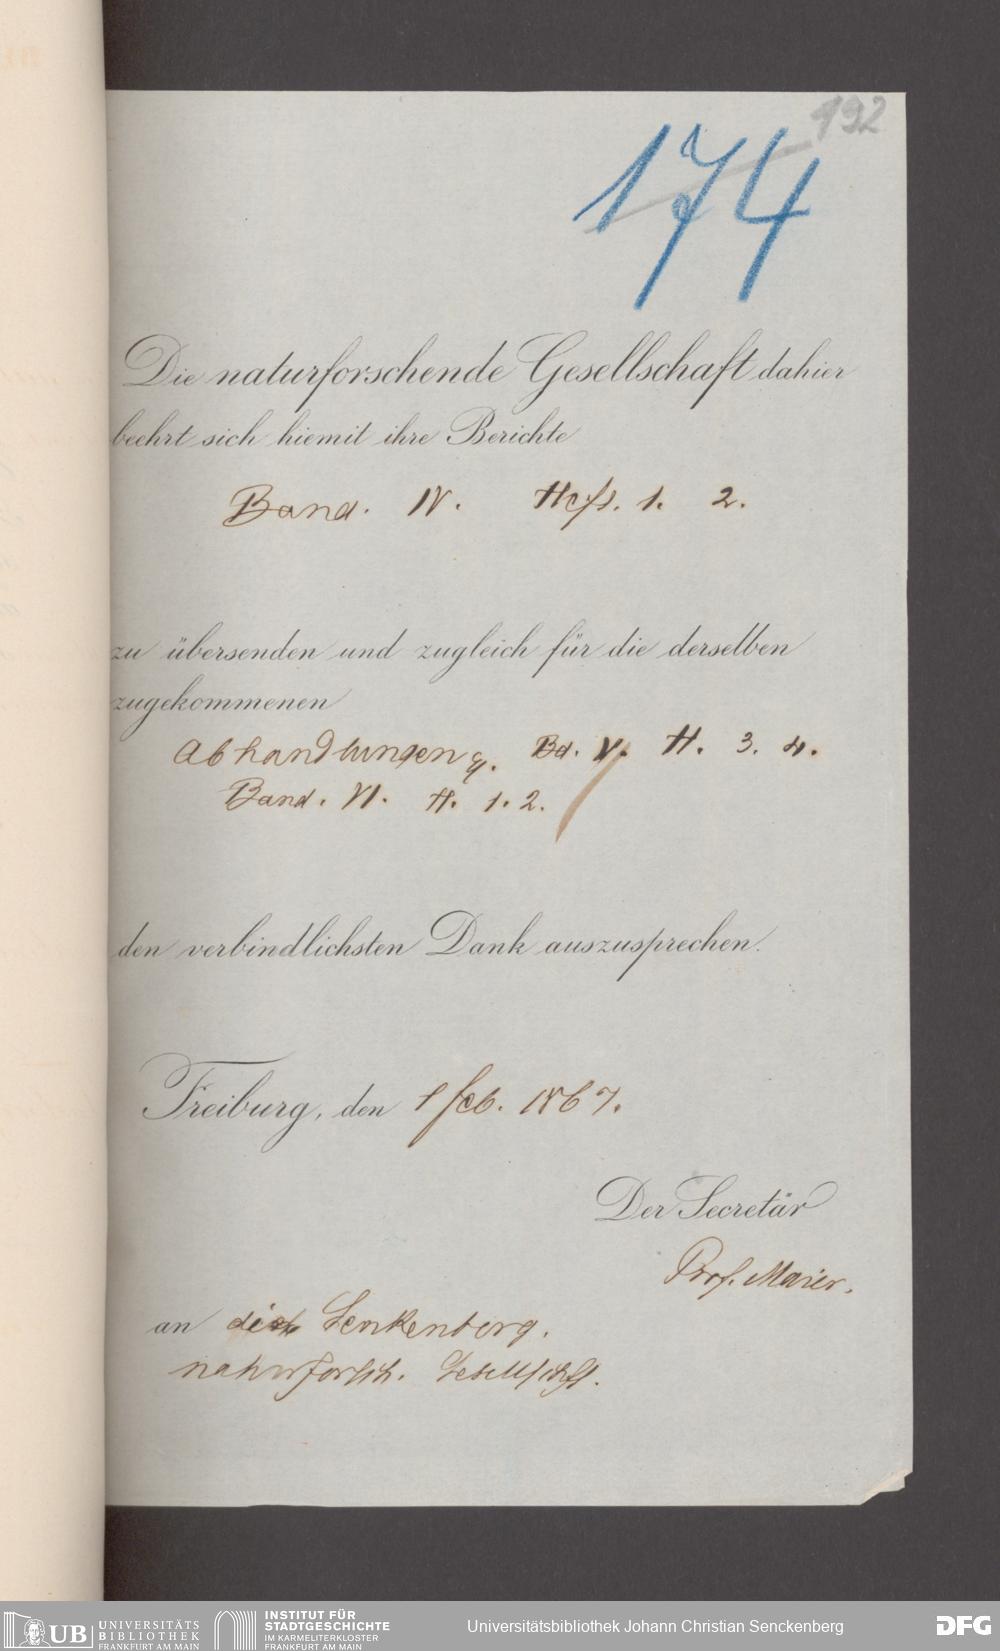 192
174
Die naturforschende Gesellschaft dahier
beehrt sich hiemit ihre Berichte
Band. IV. Heft. 1. 2.
zu übersenden und zugleich für die derselben
zugekommenen
Abhandlungen Bd. V. H. 3. 4.
Band. VI. H. 1. 2.
den verbindlichsten Dank auszusprechen.
Freiburg, den 1 feb. 1867.
Der Secretär
Prof. Maier.
an die Senkenberg.
naturforsch. Gesellschft.
UB UNIVERSITÄTS
BIBLIOTHEK
FRANKFURT AM MAIN
INSTITUT FÜR
STADTGESCHICHTE
IM KARMELITERKLOSTER
FRANKFURT AM MAIN
Universitätsbibliothek Johann Christian Senckenberg
DFG